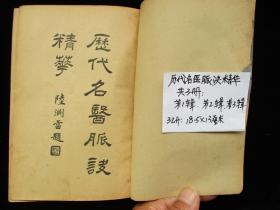 歷代名醫脈訣
精華
陸淵雷題
历代名医脈决精华
共3册.
第1辑. 第2辑 第3辑
32开: 18.5×13厘米